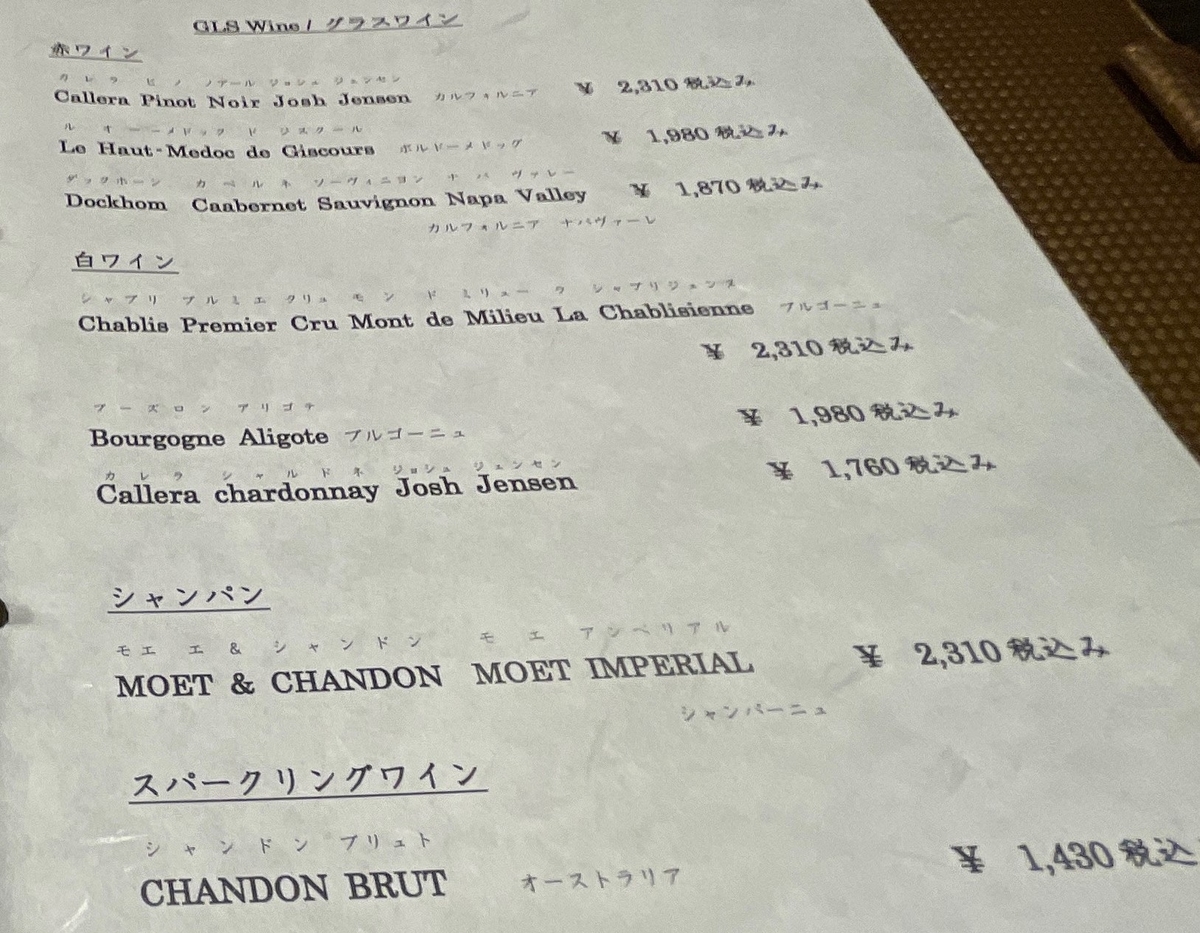 GLS Wine / グラスワイン
赤ワイン
カレラ ピノ ノアール ジョシュ ジェンセン
Callera Pinot Noir Josh Jensen カルフォルニア ¥ 2,310 税込み
ル オーーメドック ド ジスクール
Le Haut-Medoc de Giscours ボルドーメドッグ ¥ 1,980 税込み
ダックホーン カベルネ ソーヴィニヨン ナパ ヴァレー
Dockhom Caabernet Sauvignon Napa Valley ¥ 1,870 税込み
カルフォルニア ナパヴァーレ
白ワイン
シャブリ プルミエ クリュ モン ド ミリュー ラ シャブリジェンヌ
Chablis Premier Cru Mont de Milieu La Chablisienne ブルゴーニュ
¥ 2,310 税込み
ブーズロン アリゴテ
Bourgogne Aligote ブルゴーニュ ¥ 1,980 税込み
カレラ シャルドネ ジョシュ ジェンセン
Callera chardonnay Josh Jensen ¥ 1,760 税込み
シャンパン
モエ エ & シャンドン モエ アンペリアル
MOET & CHANDON MOET IMPERIAL ¥ 2,310 税込み
シャンパーニュ
スパークリングワイン
シャンドン ブリュト
CHANDON BRUT オーストラリア ¥ 1,430 税込